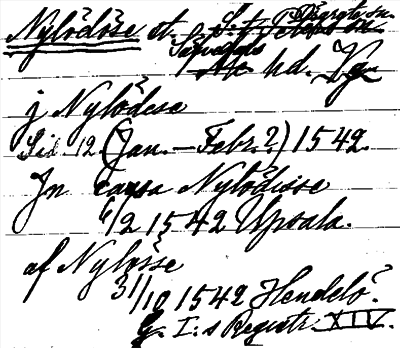 Nylödöse st.
Sävedals hd. Vg
j Nylödese
Sid 12. (Jan. – Febr.?) 1542.
Jn causa Nylödisse
6/2 1542 Upsala.
af Nyløsse
31/10 1542 Hendelö?
G. I:s Registr. XIV.